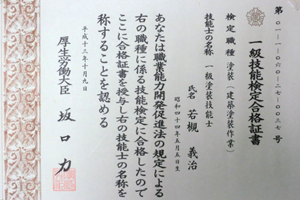 第〇一-一-〇六〇-二七-〇〇三七号
一級技能検定合格証書
検定職種 塗装(建築塗装作業)
技能士の名称 一級塗装技能士
氏名 若槻 義治
昭和四十四年五月五日生
あなたは職業能力開発促進法の規定による
右の職種に係る技能検定に合格したので
ここに合格証書を授与し右の技能士の名称を
称することを認める
平成十三年十月九日
厚生労働大臣 坂口力